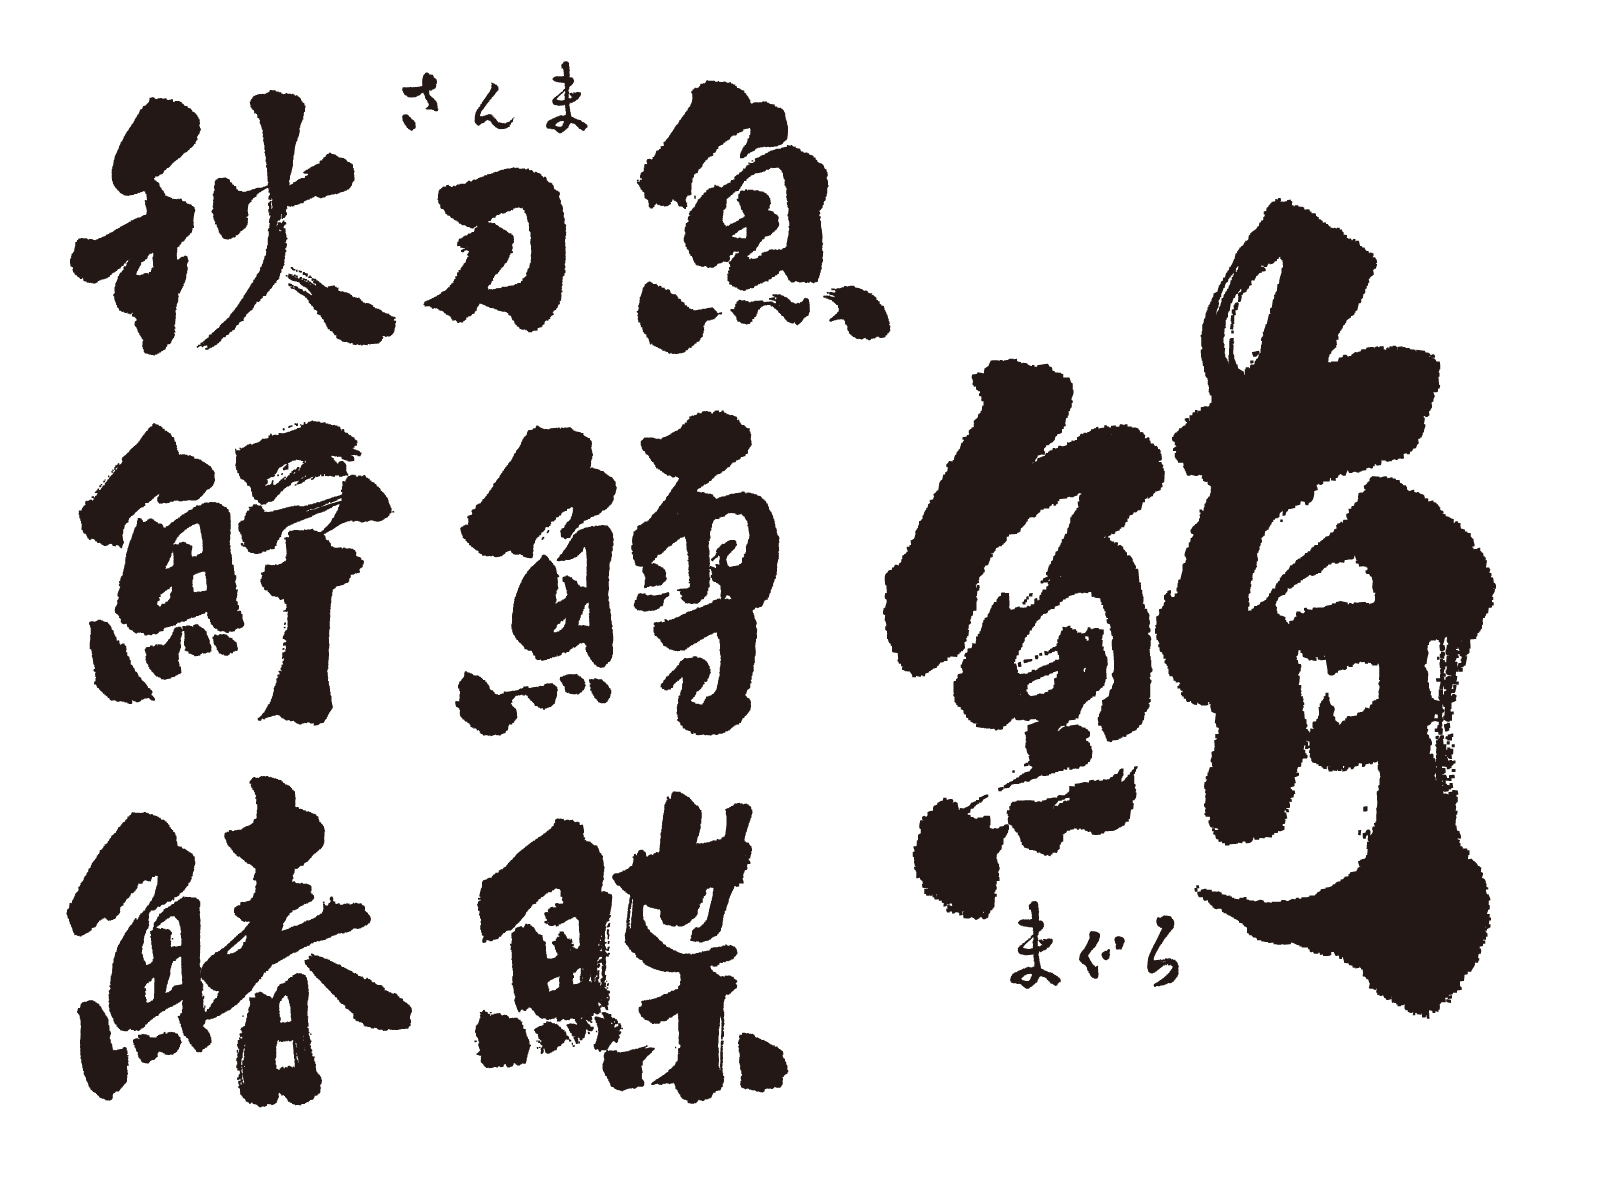 さんま
秋刀魚
鱈
鰆 鰈
鮪
まぐろ